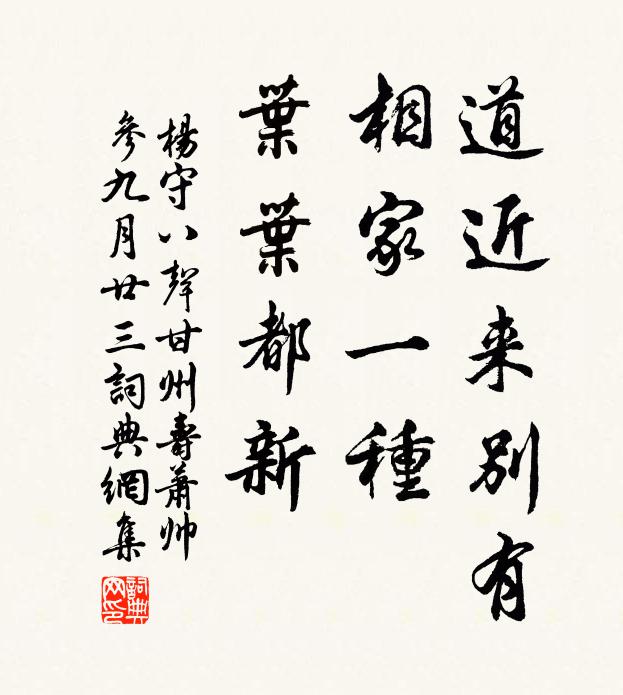 道近来别有
相家一種
葉葉都新
楊守八聲甘州壽蕭帅
參九月廿三詞典網集
詞典網印